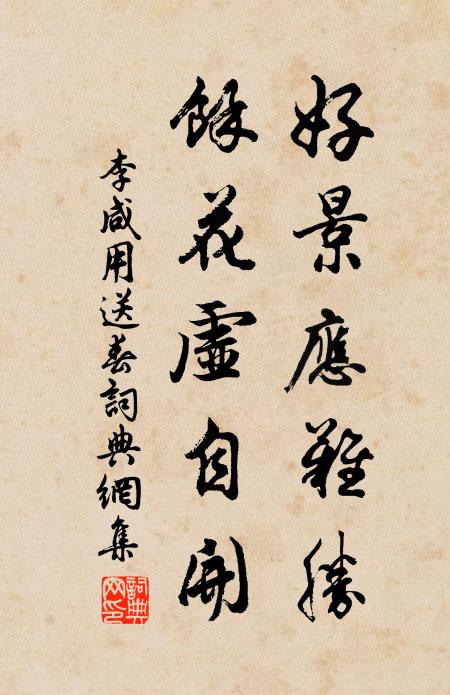 好景應難勝
餘花虛自開
李咸用送春詞典網集
詞典網印